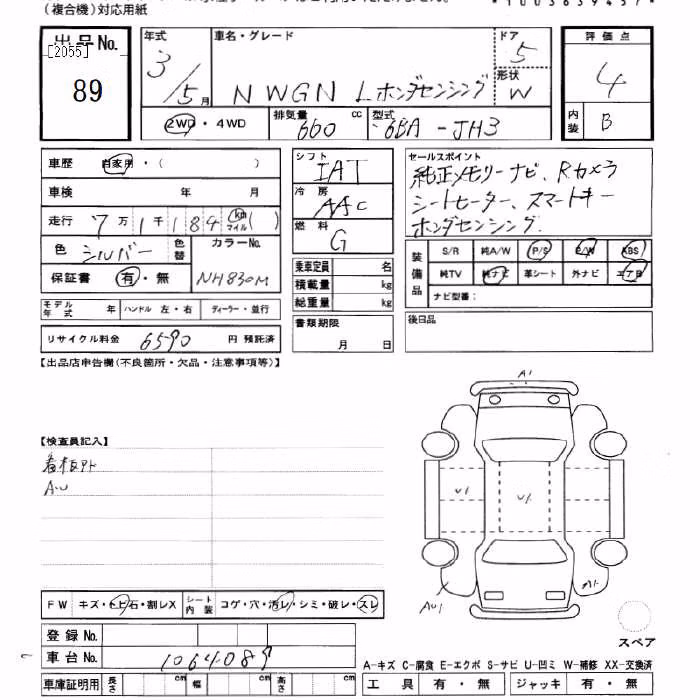 (複合機)対応用紙
出品No.
[2055]
89
年式
3/5月
車名・グレード
N WGN Lホンダセンシング
ドア
5
形状
W
2WD・4WD
排気量 660 cc
型式 6BA-JH3
評価点
4
内装 B
車歴 自家用・( )
車検 年 月
走行 7万1千184 km マイル( )
色 シルバー 色替
カラーNo. NH830M
保証書 有・無
シフト
IAT
冷房
AAC
燃料
G
乗車定員 名
積載量 kg
総重量 kg
書類期限
月 日
セールスポイント
純正メモリーナビ、Rカメラ
シートヒーター、スマートキー
ホンダセンシング、
装備品
S/R 純A/W P/S P/W ABS
純TV 純ナビ 革シート 外ナビ エアB
ナビ型番:
後日品
モデル年式 年 ハンドル 左・右 ディーラー・並行
リサイクル料金 6590 円 預託済
【出品店申告欄(不良箇所・欠品・注意事項等)】
【検査員記入】
看板外
AU
A1
U1
U1
AU1
A1
スペア
FW キズ・トビ石・割レX シート内装 コゲ・穴・汚レ・シミ・破レ・スレ
登録No.
車台No. 1064089
車庫証明用 長さ cm 幅 cm 高さ cm
A-キズ C-腐食 E-エクボ S-サビ U-凹ミ W-補修 XX-交換済
工具 有・無 ジャッキ 有・無